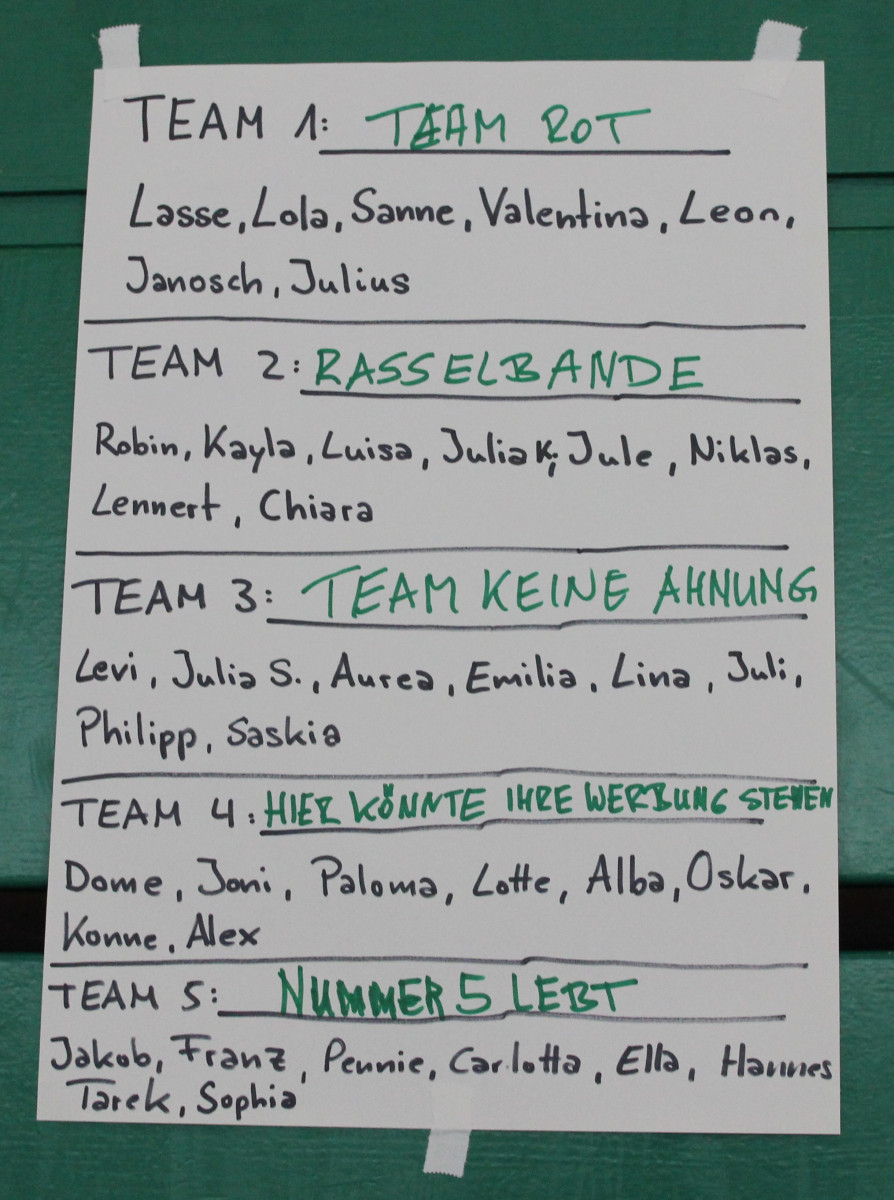 TEAM 1: TEAM ROT
Lasse, Lola, Sanne, Valentina, Leon,
Janosch, Julius
TEAM 2: RASSELBANDE
Robin, Kayla, Luisa, Julia K, Jule, Niklas,
Lennert, Chiara
TEAM 3: TEAM KEINE AHNUNG
Levi, Julia S., Aurea, Emilia, Lina, Juli,
Philipp, Saskia
TEAM 4: HIER KÖNNTE IHRE WERBUNG STEHEN
Dome, Joni, Paloma, Lotte, Alba, Oskar,
Konne, Alex
TEAM 5: NUMMER 5 LEBT
Jakob, Franz, Pennie, Carlotta, Ella, Hannes
Tarek, Sophia